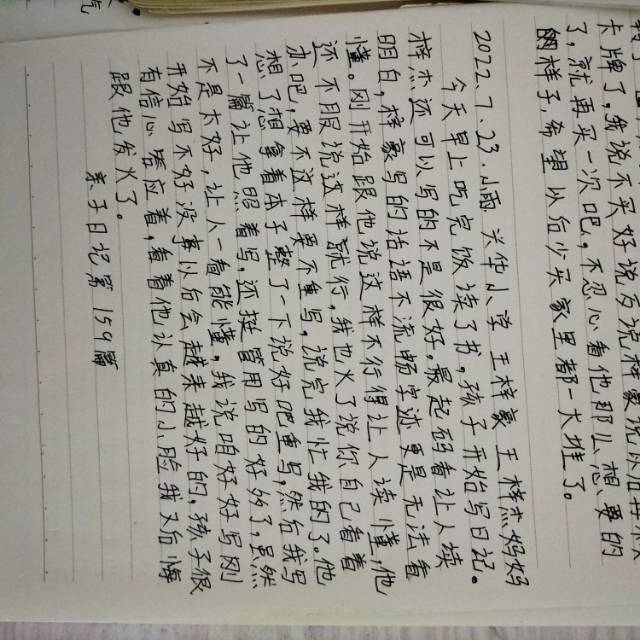 卡牌了,我说不买好说歹说梓豪说以后再不买
了,就再买一次吧。不忍心看他那么想要的
的样子,希望以后少买家里都一大堆了。
2022.7.23.小雨 兴华小学 王梓豪 王梓杰妈妈
今天早上吃完饭读了书,孩子开始写日记。
梓杰还可以写的不是很好。最起码看让人读
明白,梓豪写的话语不流畅字迹更是无法看
懂。刚开始跟他说这样不行得让人读懂,他
还不服说这样就行。我也火了说你自己看着
办吧,要不这样要不重写,说完我忙我的了。他
想了想拿着本子整了一下说好吧重写,然后我写
了一篇让他照着写,还挺管用写的好多了,虽然
不是太好,让人一看能懂。我说咱好好写刚
开始写不好没事以后会越来越好的,孩子很
有信心答应着,看着他认真的小脸我又后悔
跟他发火了。
亲子日记第159篇